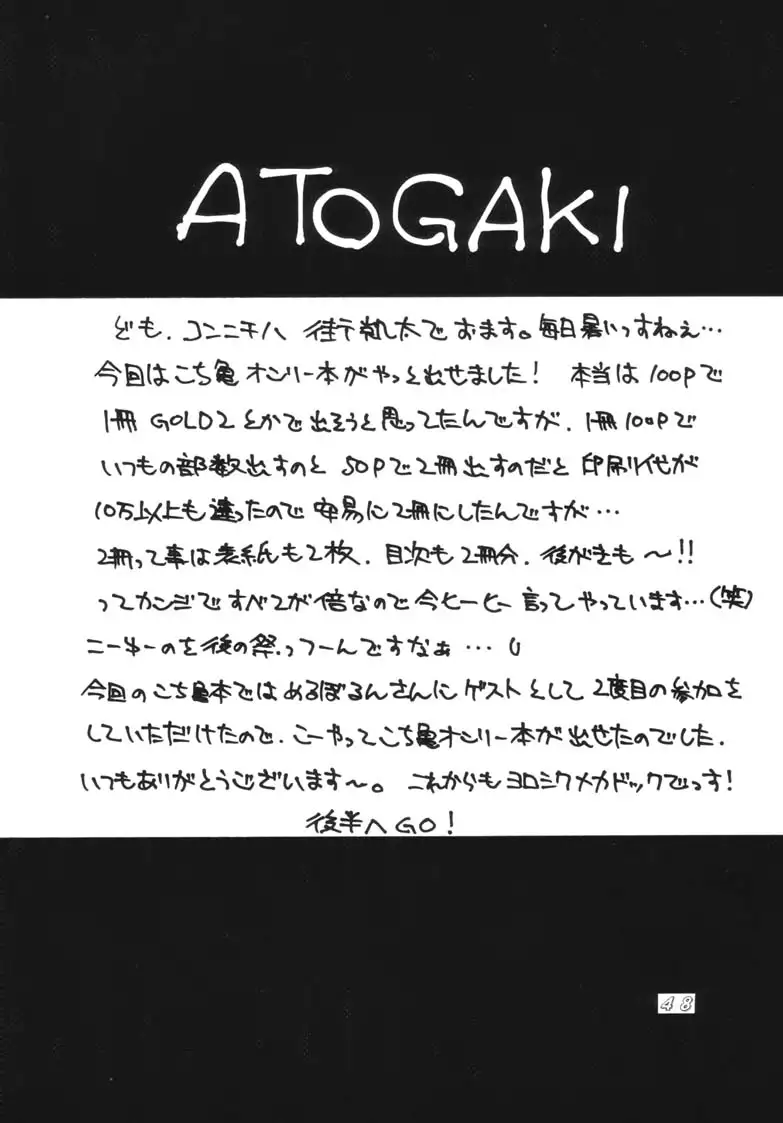 ATOGAKI
ども、コンニチハ 街凱太でおます。毎日暑いっすねぇ…
今回はこち亀オンリー本がやっと出せました! 本当は100Pで
1冊 GOLD2とかで出そうと思ってたんですが、1冊100Pで
いつもの部数出すのと 50Pで2冊出すのだと 印刷代が
10万以上も違ったので 安易に2冊にしたんですが…
2冊って事は表紙も2枚、目次も2冊分、後がきも〜!!
ってカンジですべてが倍なので今ヒーヒー言ってやっています…(笑)
こーゆーのを後の祭っつーんですなぁ…
今回のこち亀本ではめるぼるんさんにゲストとして2度目の参加を
していただけたので、こーやってこち亀オンリー本が出せたのでした。
いつもありがとうございます〜。 これからもヨロシクメカドックでっす!
後半へGO!
48